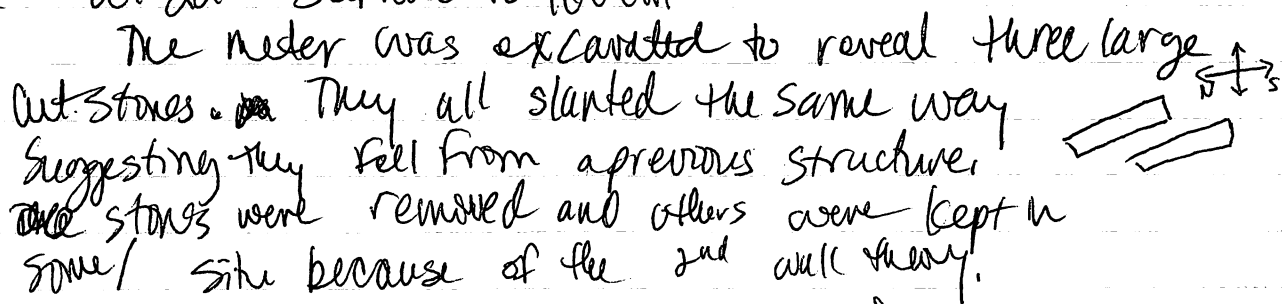 The meter was excavated to reveal three large
N S
cut stones. They all slanted the same way
suggesting they fell from a previous structure.
stones were removed and others were kept in
some/ situ because of the 2nd wall theory.